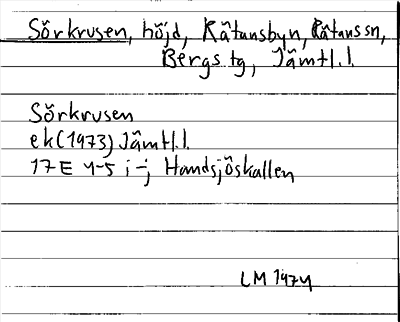 Sörkrusen, höjd, Råtansbyn, Råtans sn,
Bergs tg, Jämtl.l.
Sörkrusen
ek (1973) Jämtl.l.
17E 4-5 i-j Handsjöskallen
LM 1974